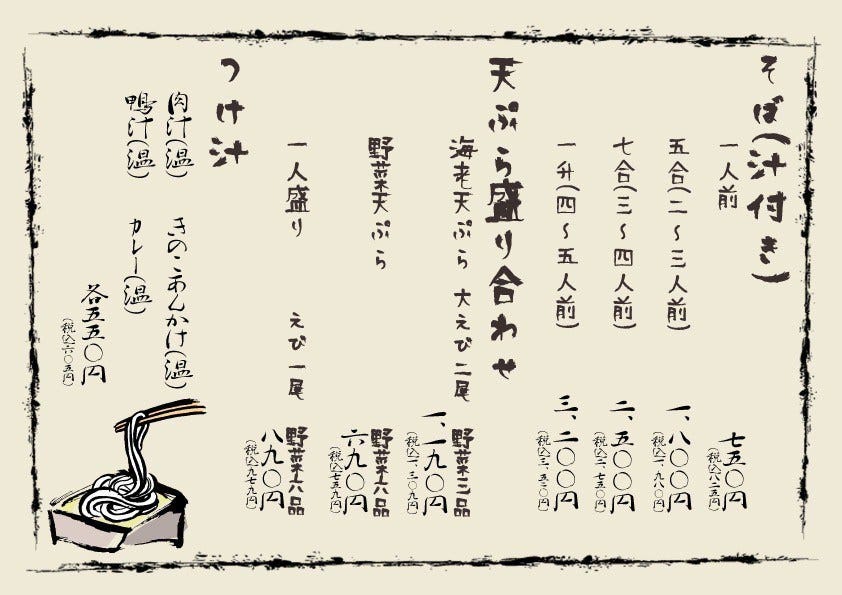 そば(汁付き)
一人前
七五〇円
(税込八二五円)
五合(二〜三人前)
一、八〇〇円
(税込一、九八〇円)
七合(三〜四人前)
二、五〇〇円
(税込二、七五〇円)
一升(四〜五人前)
三、二〇〇円
(税込三、五二〇円)
天ぷら盛り合わせ
海老天ぷら 大えび二尾 野菜三品
一、一九〇円
(税込一、三〇九円)
野菜天ぷら 野菜六品
六九〇円
(税込七五九円)
一人盛り えび一尾 野菜六品
八九〇円
(税込九七九円)
つけ汁
肉汁(温) きのこあんかけ(温)
鴨汁(温) カレー(温)
各五五〇円
(税込六〇五円)